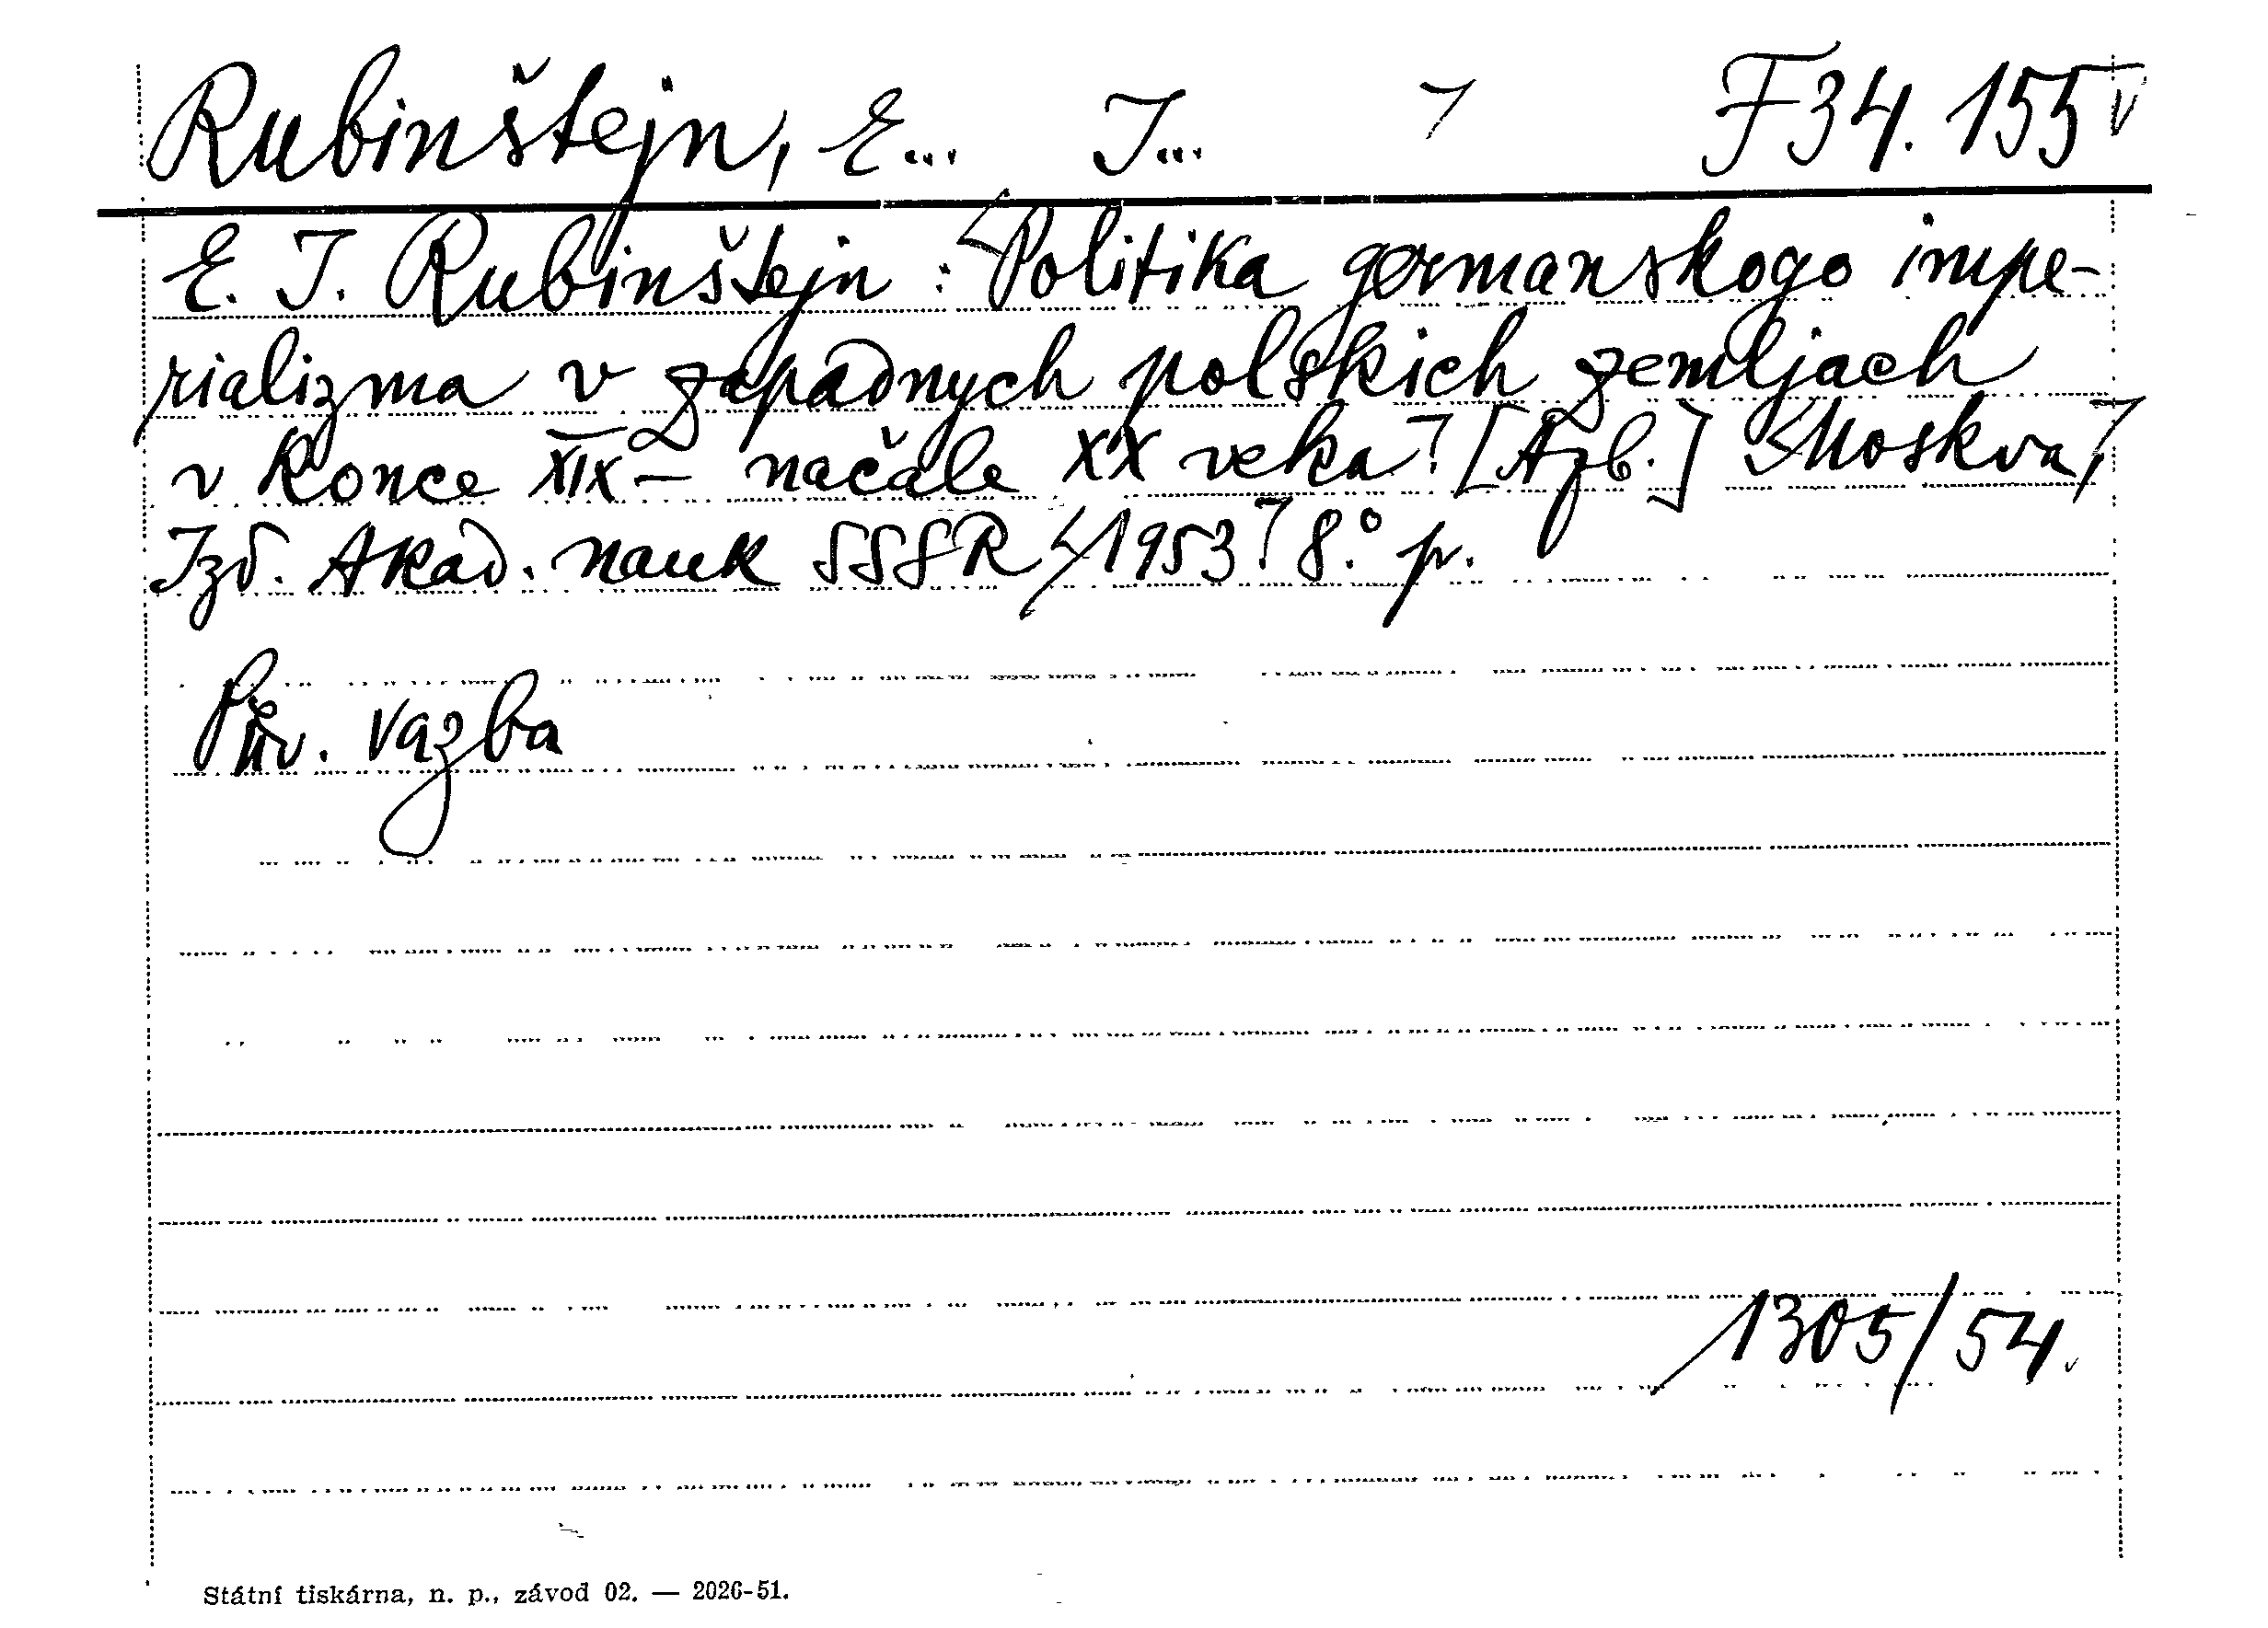 Rubinštejn, E... I... F 34.155
E. I. Rubinštejn: Politika germanskogo impe-
rializma v zapadnych polskich zemljach
v konce XIX – načale XX veka. [Azb.] Moskva,
Izd. Akad. nauk SSSR 1953. 8.° pr.
Pův. vazba
1305/54.
Státní tiskárna, n. p., závod 02. — 2026-51.